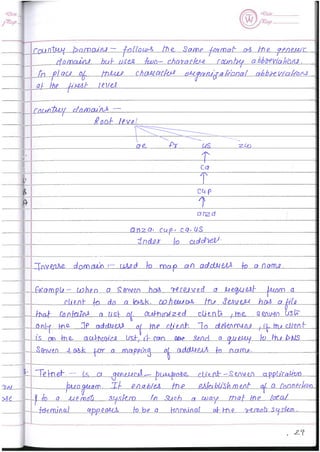 Country Domains - follows the same format as the generic
domains but uses two-character country abbreviations
in place of three character organizational abbreviations
at the first level
country domains :-
Root level
ae fr us zw
ca
cup
anza
anza. cup. ca. us
Index to address
Inverse domain :- used to map an address to a name.
Example - when a server has received a request from a
client to do a task. whereas the server has a file
that contains a list of authorized clients, the server lists
only the IP address of the client. To determine, if the client
is on the authorize list, it can send a query to the DNS
server & ask for a mapping of address to name.
Telnet - is a general-purpose client-server application
program. It enables the establishment of a connection
to a remote system in such a way that the local
terminal appears to be a terminal at the remote system.
29